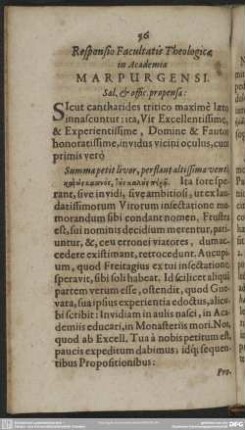 96
Responsio Facultatis Theologicæ
in Academia
MARPURGENSI.
Sal. & offic. propensa:
SIcut cantharides tritico maximè læto
innascuntur: ita, Vir Excellentissime,
& Experientissime, Domine & Fautor
honoratissime, invidus vicini oculus, cum
primis verò
Summa petit livor, perflant altissima venti
Ita fore sperant,
sive invidi, sive ambitiosi, ut ex laudatissimorum
Virorum insectatione memorandum
sibi condant nomen, Frustra
est, sui nominis decidium merentur, pariuntur,
&, ceu erronei viatores, dum accedere
existimant, retrocedunt. Aucupium,
quod Freitagius ex tui insectatione
speravit, sibi soli habeat. Id scilicet aliqui
partem verum esse, ostendit, quod Guevara,
sua ipsius experientia edoctus, alicubi
scribit: Invidiam in aulis nasci, in Academiis
educari, in Monasteriis mori. Nos,
quod ab Excell. Tua à nobis petitum est,
paucis expeditum dabimus, idq; sequentibus
Propositionibus:
Pro-